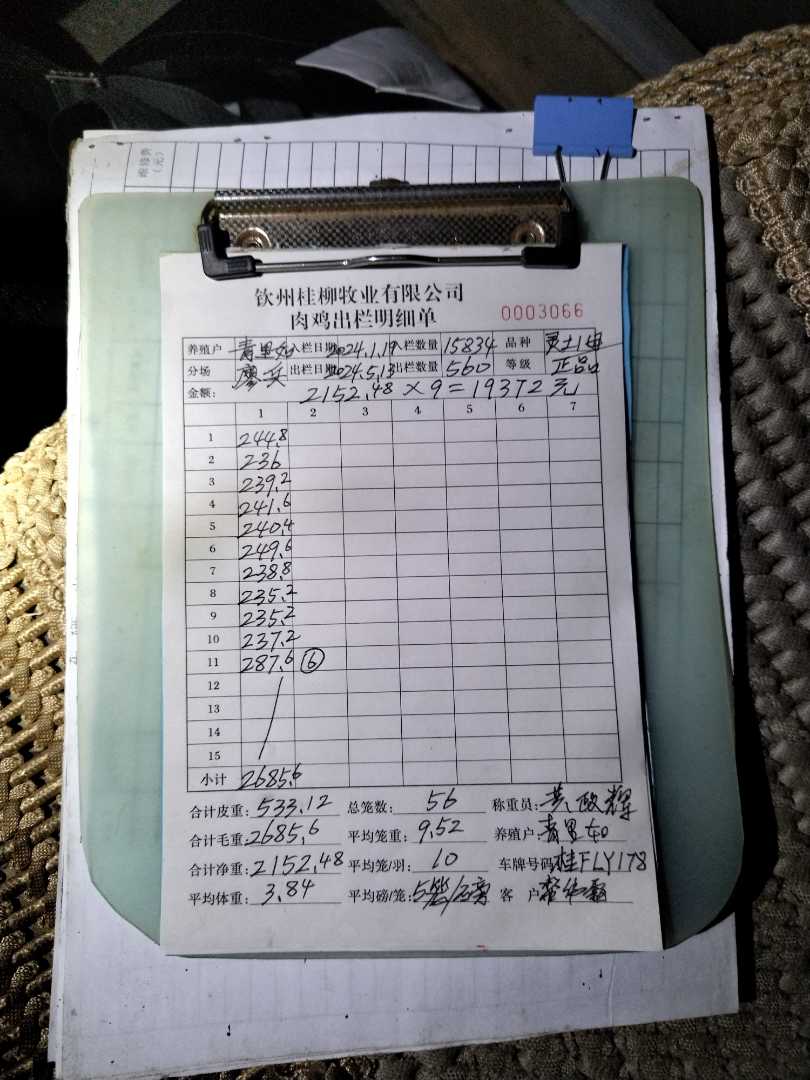 维修费
(元)
钦州桂柳牧业有限公司
肉鸡出栏明细单 0003066
养殖户 入栏日期 2024.1.19 入栏数量 15834 品种
分场 廖兵 出栏日期 2024.5.13 出栏数量 560 等级 正品
金额: 2152.48×9=19372元
1 2 3 4 5 6 7
1 244.8
2 236
3 239.2
4 241.6
5 240.4
6 249.6
7 238.8
8 235.2
9 235.2
10 237.2
11 287.6 ⑥
12
13
14
15
小计 2685.6
合计皮重: 533.12 总笼数: 56 称重员: 黄政辉
合计毛重: 2685.6 平均笼重: 9.52 养殖户:
合计净重: 2152.48 平均笼/羽: 10 车牌号码: 桂FLY178
平均体重: 3.84 平均磅/笼: 5笼/磅 客户